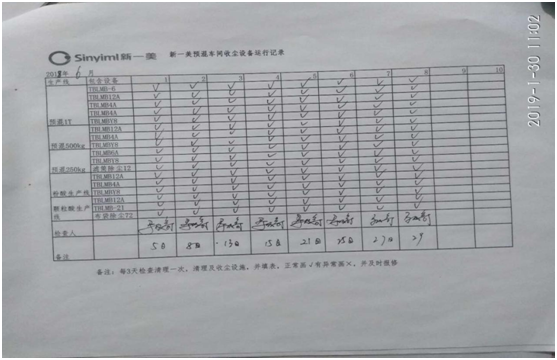 Sinyiml新一美 新一美预混车间收尘设备运行记录
2018年 6 月
生产线 包含设备 1 2 3 4 5 6 7 8 9 10
TBLMB-6 ✓ ✓ ✓ ✓ ✓ ✓ ✓ ✓
TBLMB12A ✓ ✓ ✓ ✓ ✓ ✓ ✓ ✓
TBLMB4A ✓ ✓ ✓ ✓ ✓ ✓ ✓ ✓
TBLMB4A ✓ ✓ ✓ ✓ ✓ ✓ ✓ ✓
预混1T TBLMBY8 ✓ ✓ ✓ ✓ ✓ ✓ ✓ ✓
TBLMB12A ✓ ✓ ✓ ✓ ✓ ✓ ✓ ✓
TBLMB4A ✓ ✓ ✓ ✓ ✓ ✓ ✓ ✓
预混500kg TBLMBY8 ✓ ✓ ✓ ✓ ✓ ✓ ✓ ✓
TBLMB6A ✓ ✓ ✓ ✓ ✓ ✓ ✓ ✓
TBLMBY8 ✓ ✓ ✓ ✓ ✓ ✓ ✓ ✓
预混250kg 滤筒除尘12 ✓ ✓ ✓ ✓ ✓ ✓ ✓ ✓
TBLMB12A ✓ ✓ ✓ ✓ ✓ ✓ ✓ ✓
TBLMB4A ✓ ✓ ✓ ✓ ✓ ✓ ✓ ✓
粉酸生产线 TBLMBY8 ✓ ✓ ✓ ✓ ✓ ✓ ✓ ✓
TBLMB12A ✓ ✓ ✓ ✓ ✓ ✓ ✓ ✓
颗粒酸生产线 TBLMB-21 ✓ ✓ ✓ ✓ ✓ ✓ ✓ ✓
布袋除尘72 ✓ ✓ ✓ ✓ ✓ ✓ ✓ ✓
检查人
备注 5日 8日 13日 15日 21日 25日 27日 29
备注：每3天检查清理一次，清理及收尘设施，并填表，正常画√有异常画×，并及时报修
2019-1-30 11:02